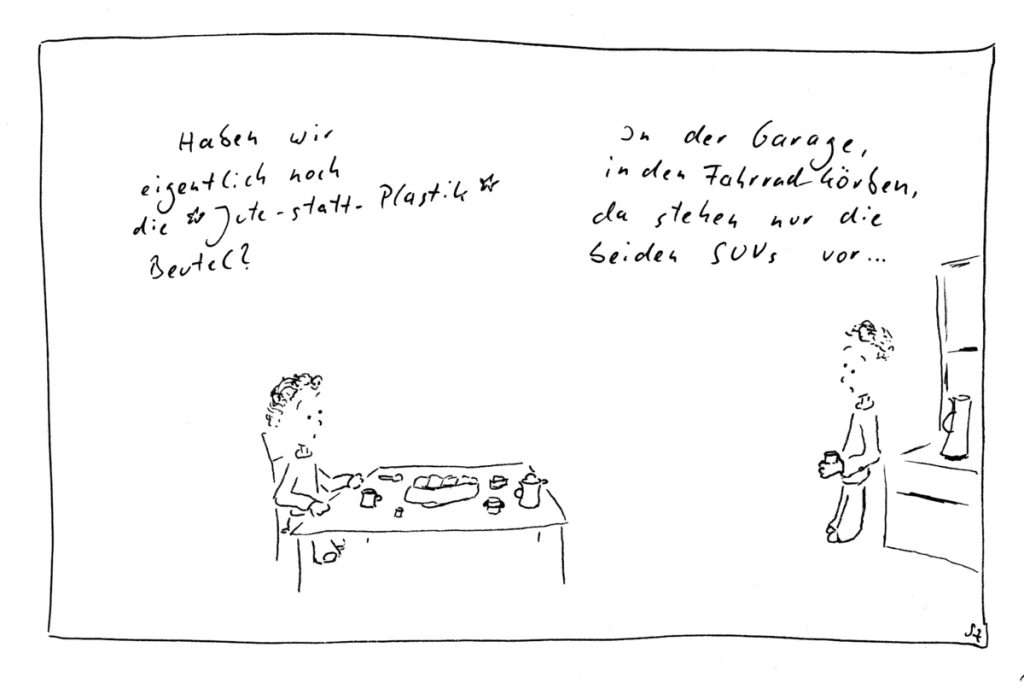 Haben wir
eigentlich noch
die *Jute-statt-Plastik*
Beutel?
In der Garage,
in den Fahrradkörben,
da stehen nur die
beiden SUVs vor...